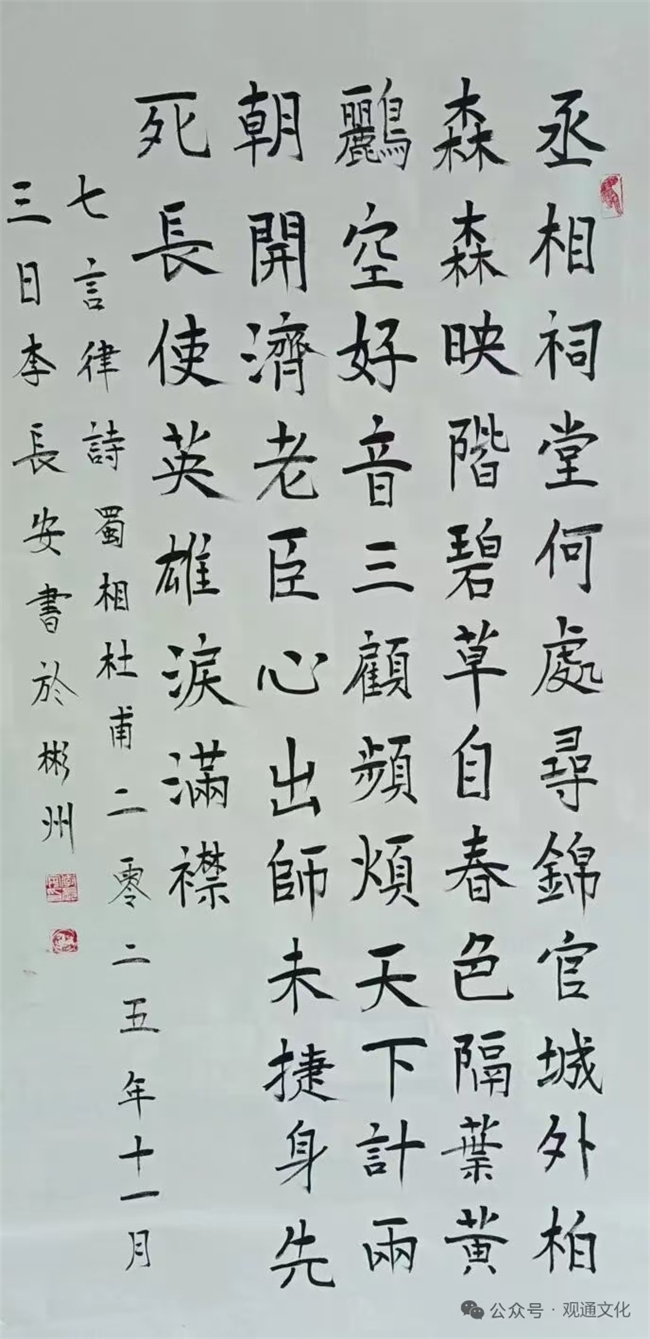 丞相祠堂何處尋錦官城外柏
森森森映階碧草自春色隔葉黃
鸝空好音三顧頻煩天下計兩
朝開濟老臣心出師未捷身先
死長使英雄淚滿襟
七言律詩蜀相杜甫二零二五年十一月
三日李長安書於彬州
公众号·观通文化